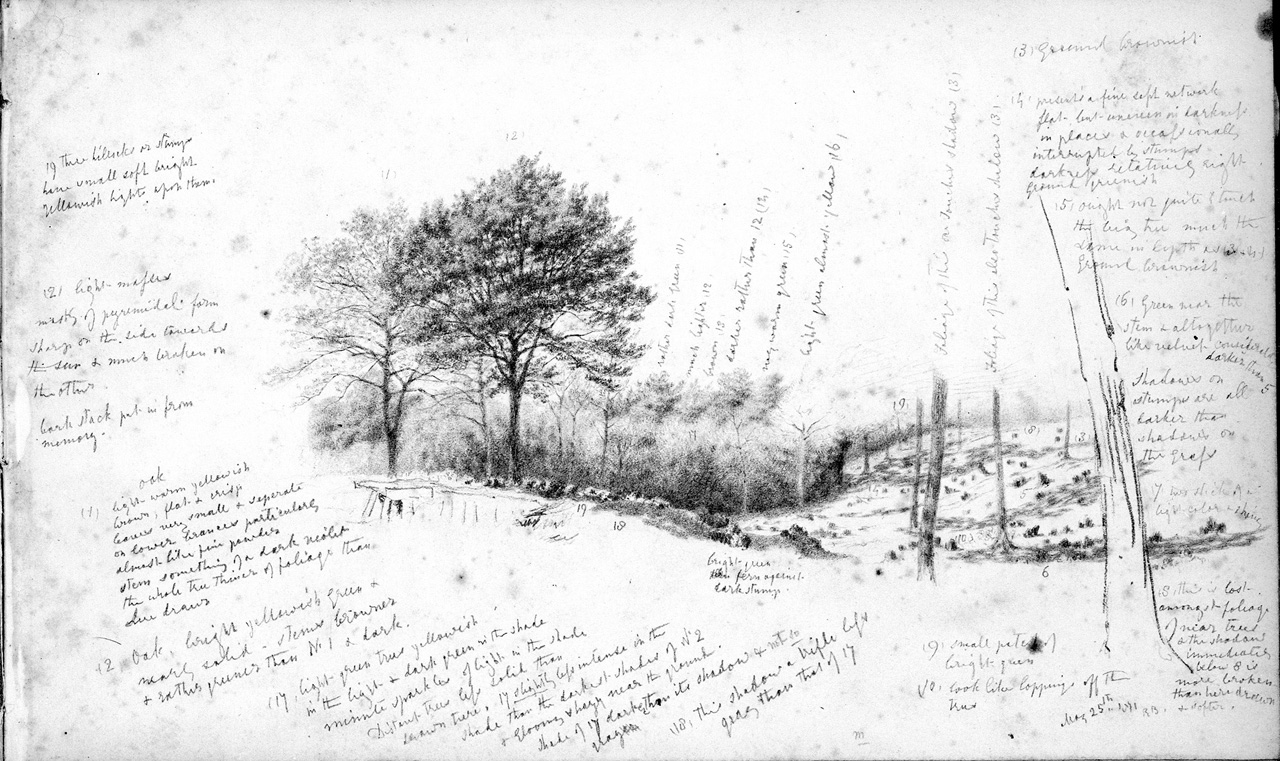 19 Three hillocks or stumps
have small soft bright
yellowish lights upon them.
(2) light masses
mostly of pyramidal form
sharp on the side towards
the sun & much broken on
the other.
bark stack put in from
memory.
(1) oak
light warm yellowish
brown, flat & crisp
leaves very small & separate
on lower branches particularly
almost like fine powder
stem something of a dark violet
the whole tree thinner of foliage than
here drawn
12 Oak, bright yellowish green &
nearly solid - stems browner
& rather greener than No 1 & dark.
(17) light green trees yellowish
in the light & dark green in the shade
minute sparkles of light in the shade
Distant trees less solid than
drawn there, 17 slightly less intense in the
shade than the darkest shades of No 2
& gloomy & sharp near the ground.
shade of 17 darker than its shadow & not so
(18) this shadow a trifle less
gray than that of 17
1
2
rather dark green (11)
much lighter 12
brown 13
darker rather than 12 (14)
very warm green (15)
light green almost yellow (16)
foliage of this and its shadow (3)
foliage of this also shadow (3)
(3) Ground brownish
(4) presents a fine soft network
flat but uneven in darkness
in places & occasionally
interrupted by stumps
darkness relatively right
ground greenish
(5) ought not quite touch
the big tree much the
same in depth as
Ground brownish
(6) Green near the
stem & altogether
like velvet considerably
darker than 5
Shadows on
stumps are all
darker than
shadows on
the grass
8 this is lost
amongst foliage
of near trees
& the shadow
immediately
below 8 is
more broken
than here drawn
& softer.
19
(8)
13
19
18
6
bright green
fern against
dark stump.
(9) small patch of
bright green
10 look like loppings off the
tree
May 25th
m